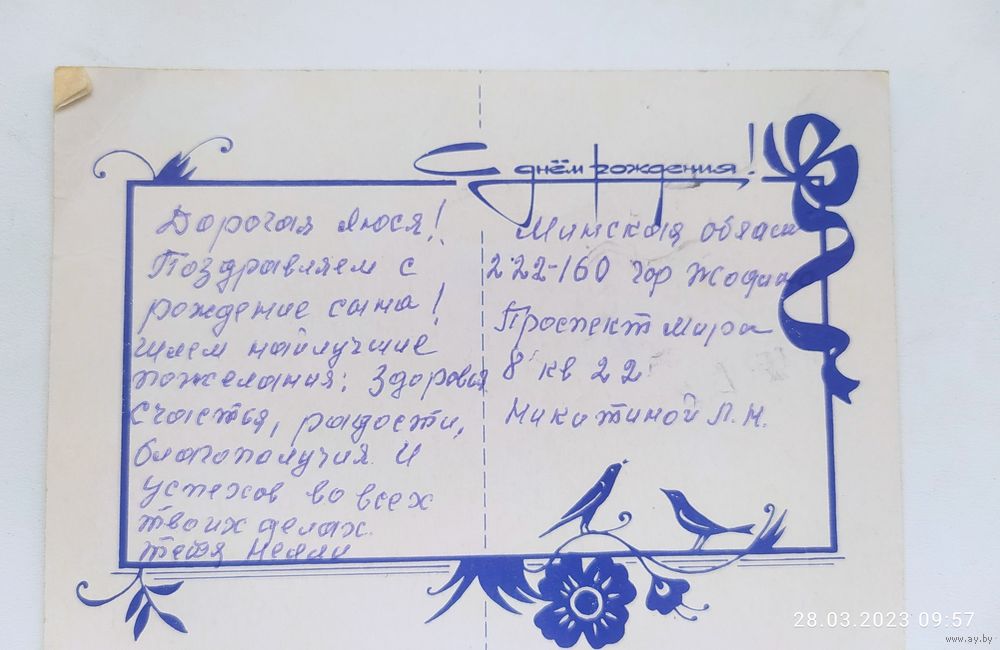 С днём рождения!
Дорогая Люся!
Поздравляем с
рождение сына!
Шлем найлучшие
пожелания: Здоровья
счастья, радости,
благополучия. И
успехов во всех
твоих делах.
тётя Нелли
Минская област
222-160 гор Жодин
Проспект Мира
8 кв 22
Никитиной Л.Н.
28.03.2023 09:57
www.ay.by